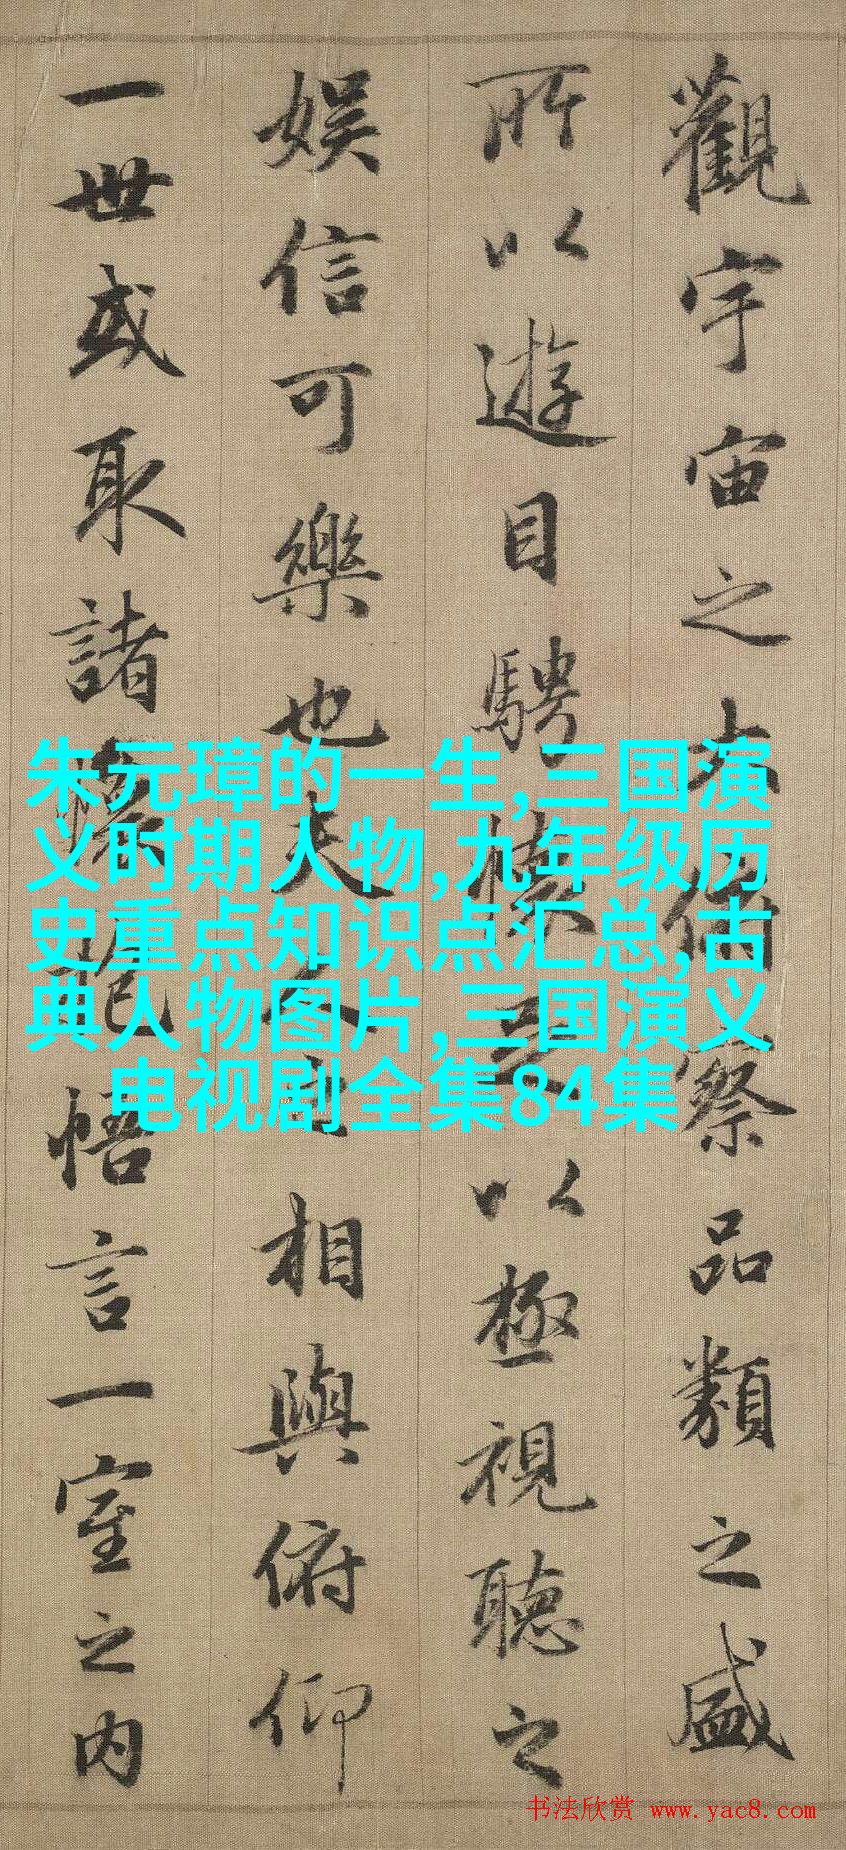 觀宇宙之大俯察品類之盛
所以遊目騁懷足以極視聽之
娛信可樂也夫人之相與俯仰
一世或取諸懷抱悟言一室之內
朱元璋的一生,三国演
义时期人物,九年级历
史重点知识点汇总,古
典人物图片,三国演义
电视剧全集84集
书法欣赏 www.yac8.com